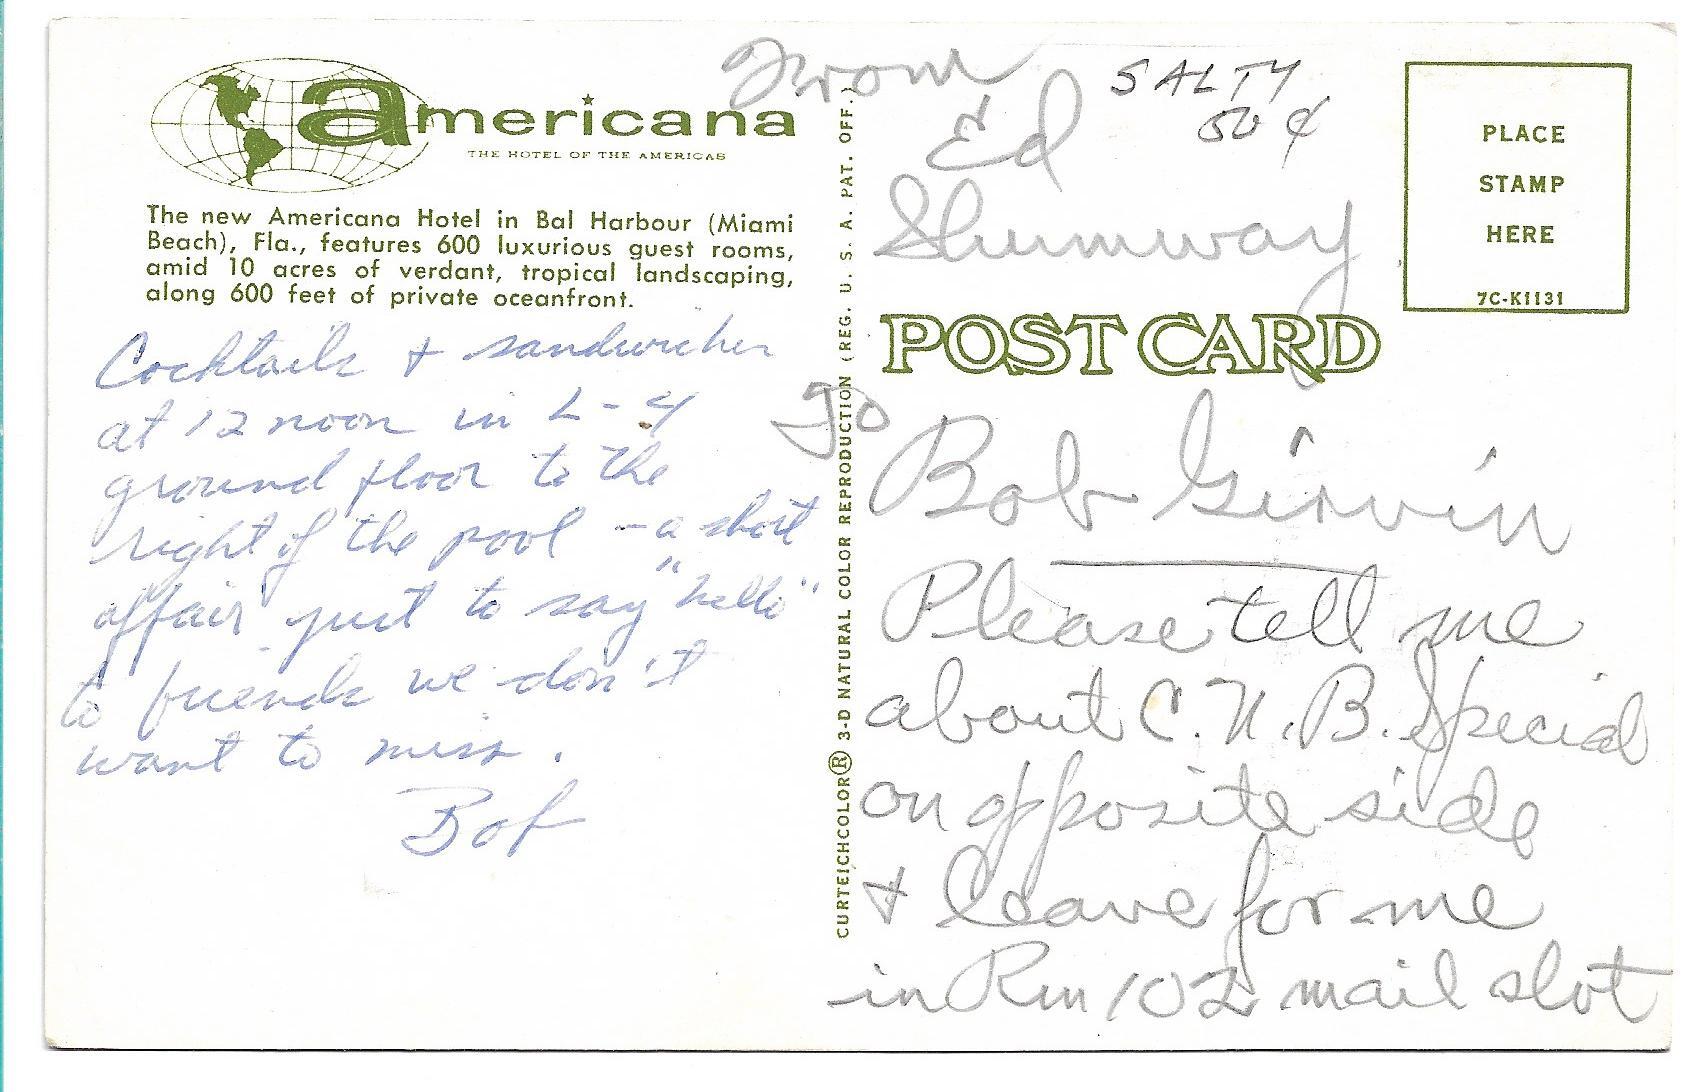 americana
THE HOTEL OF THE AMERICAS
The new Americana Hotel in Bal Harbour (Miami
Beach), Fla., features 600 luxurious guest rooms,
amid 10 acres of verdant, tropical landscaping,
along 600 feet of private oceanfront.
Cocktails + sandwiches
at 12 noon in L-4
ground floor to the
right of the pool - a short
affair just to say "hello"
to friends we don't
want to miss.
Bob
CURTEICHCOLOR® 3-D NATURAL COLOR REPRODUCTION (REG. U. S. A. PAT. OFF.)
From
Ed
Shumway
SALTY
50 ¢
PLACE
STAMP
HERE
7C-K1131
POST CARD
To
Bob Girvin
Please tell me
about C.N.B. Special
on opposite side
+ leave for me
in Rm 102 mail slot